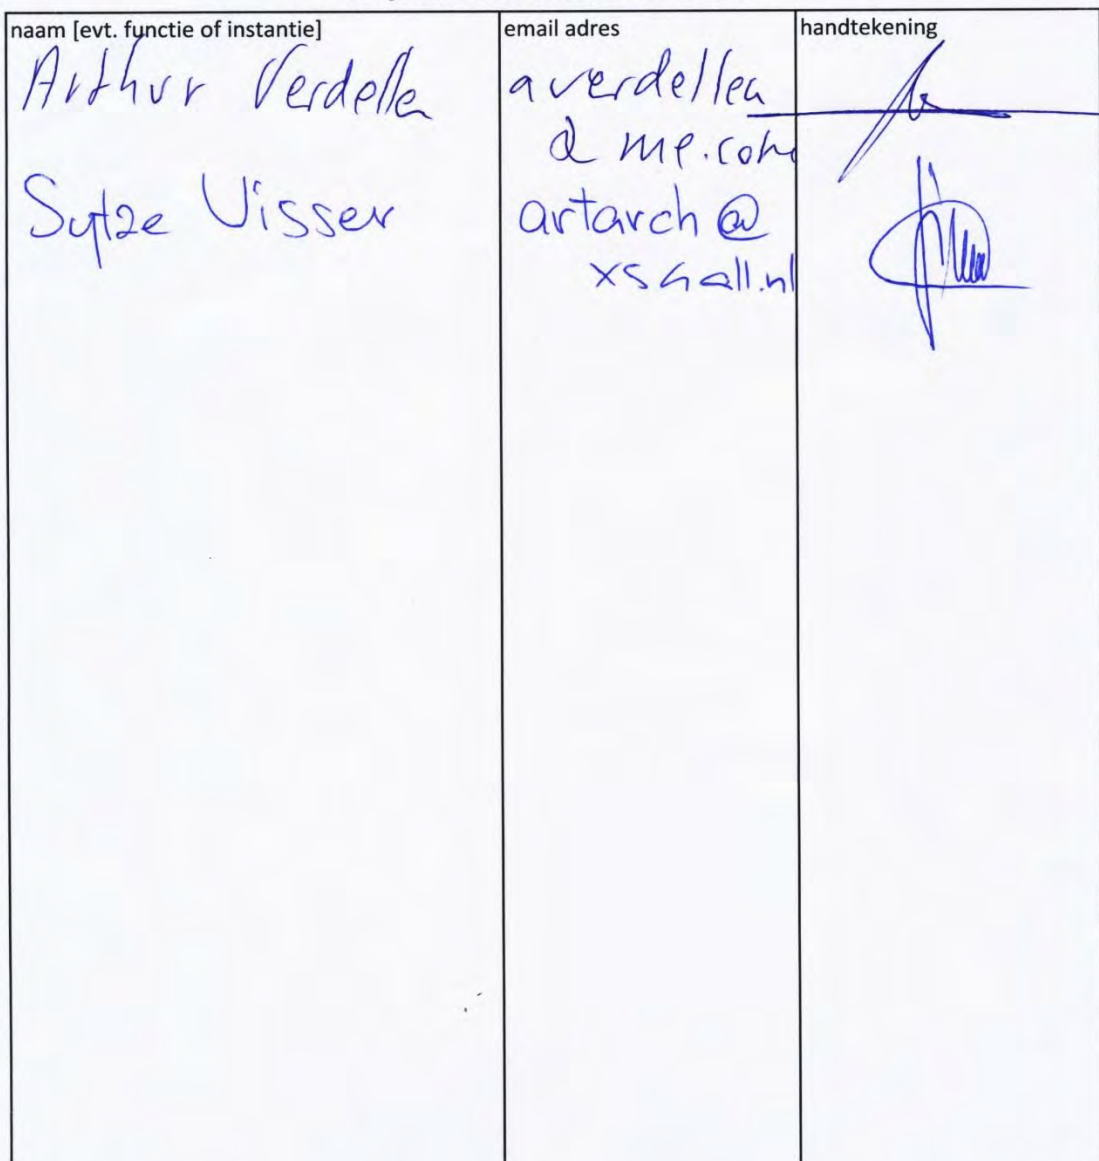 naam [evt. functie of instantie] email adres handtekening
Arthur Verdellen averdellen
@ me.com
Sytze Visser artarch @
xs4all.nl